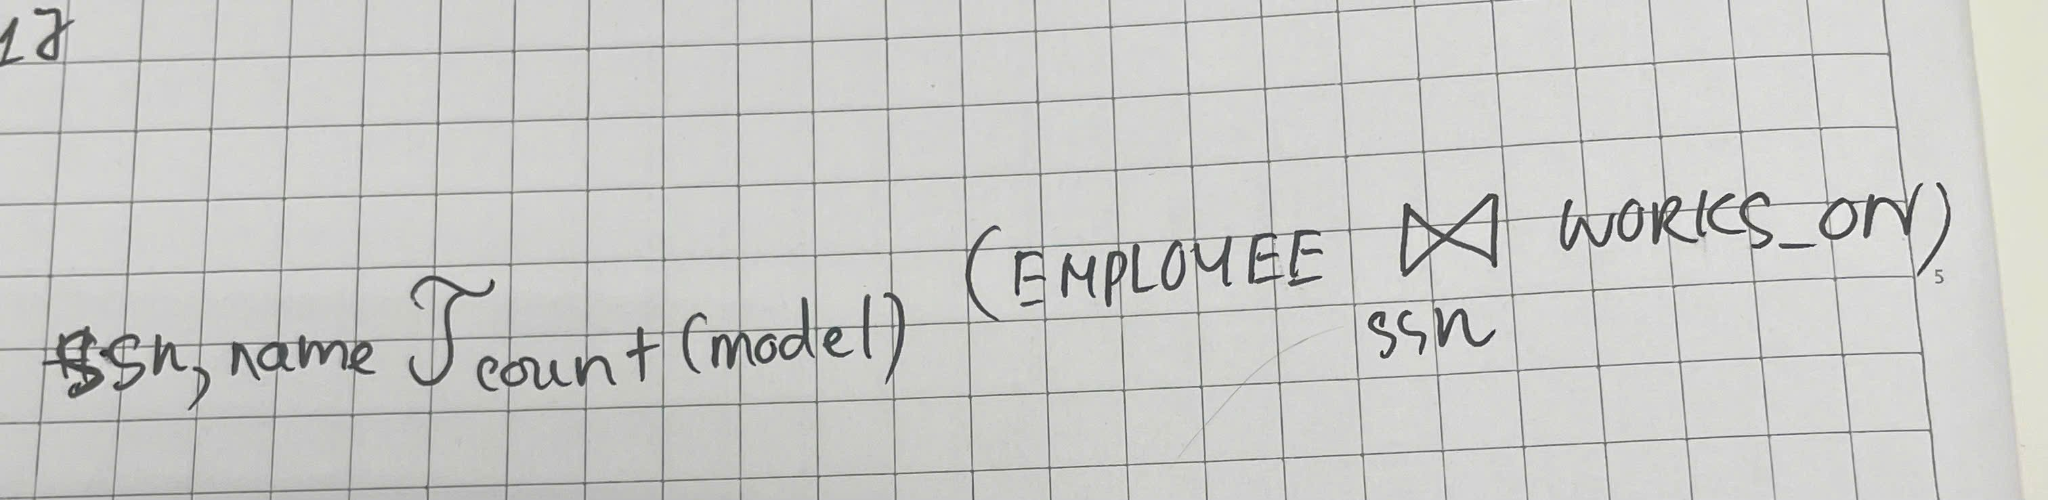 17
ssn, name ℱ count (model) (EMPLOYEE ⋈ WORKS_ON)
ssn
5